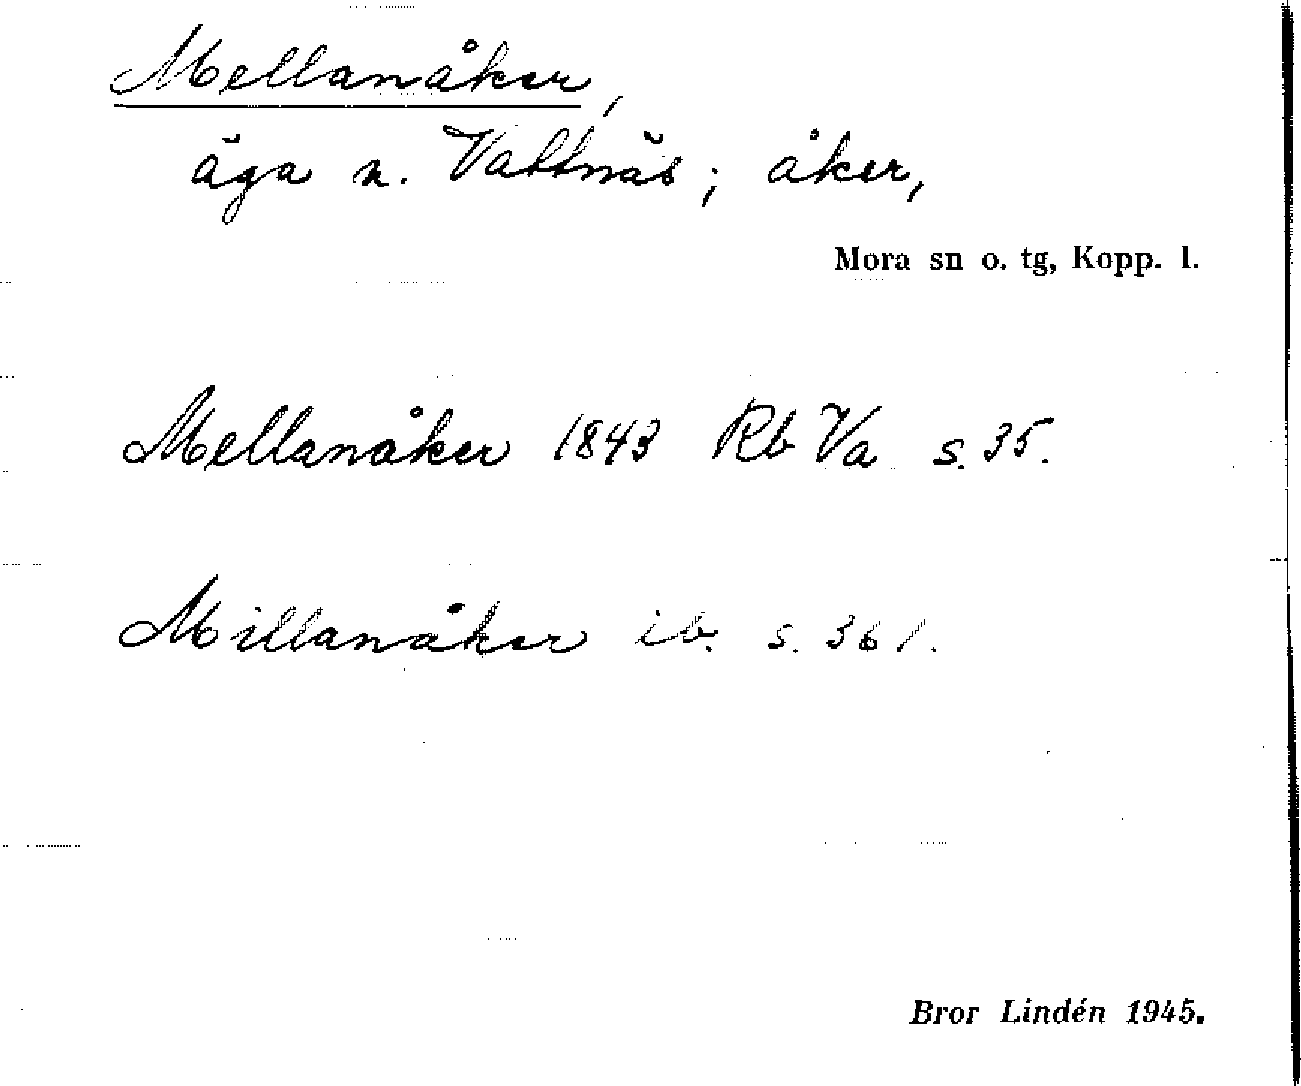 Mellanåker,
äga n. Vattnäs; åker,
Mora sn o. tg, Kopp. l.
Mellanåker 1843 Rb Va s. 35.
Millanåker ib. s. 361.
Bror Lindén 1945.